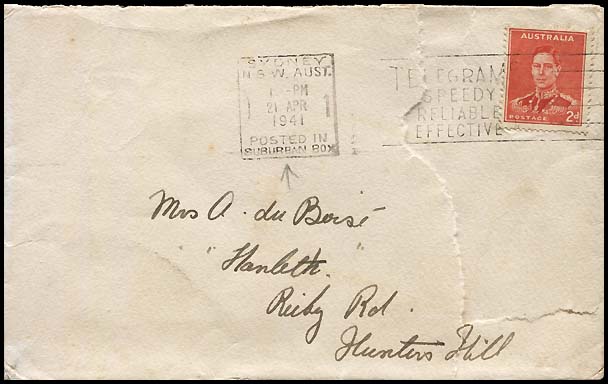 SYDNEY
N.S.W. AUST.
-PM
21 APR
1941
POSTED IN
SUBURBAN BOX
TELEGRAMS
SPEEDY
RELIABLE
EFFECTIVE
AUSTRALIA
POSTAGE 2d
Mrs A. du Boisé
"Hanleth."
Reiby Rd.
Hunters Hill